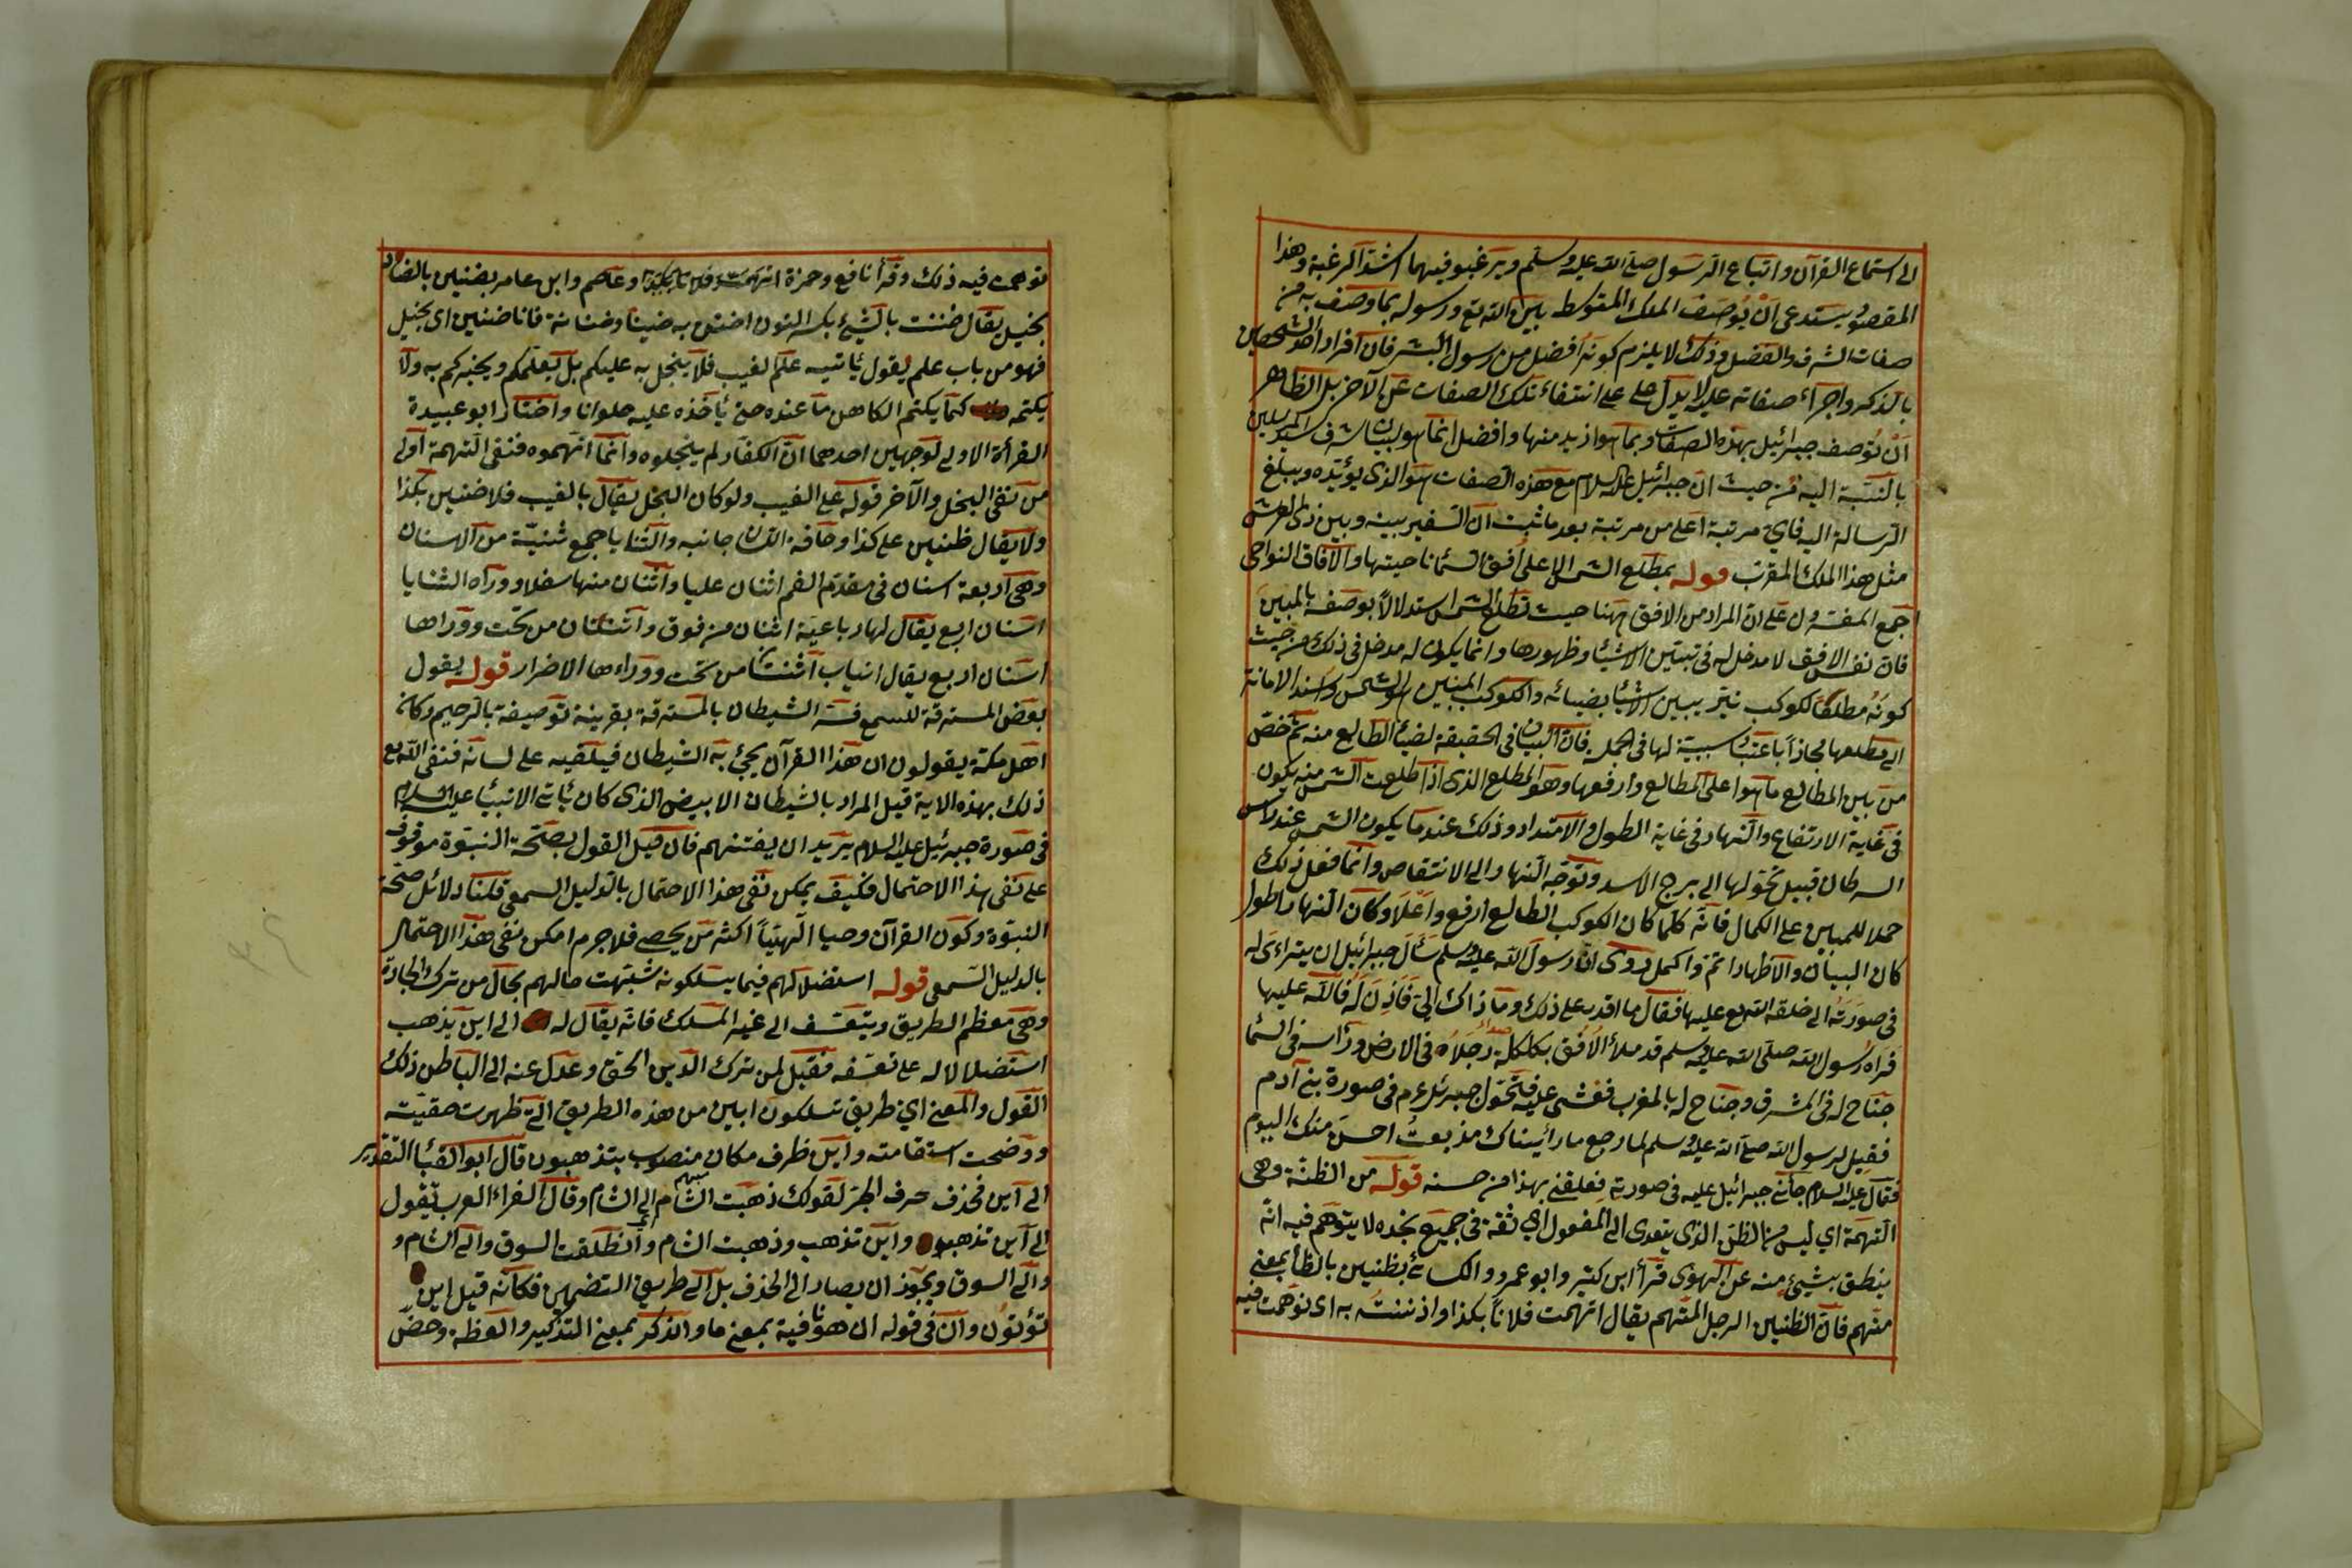 الى استماع القرآن واتباع الرسول صلى الله عليه وسلم ويرغبو فيهما اشد الرغبة وهذا
المقصود يستدعى ان يوصف الملك المتوسط بين الله تع ورسوله بما وصف به من
صفات الشرف والفضل وذلك لا يلزم كونه افضل من رسول البشر فان افراد احد الشخصين
بالذكر واجراء صفاته عليه لا يدل على انتفاء تلك الصفات عن الآخر بل الظاهر
ان توصف جبرائيل بهذه الصفات وبما هو ازيد منها وافضل انما هو لبيان شرف سيد المرسلين
بالنسبة اليه من حيث ان جبرائيل عليه السلام مع هذه الصفات هو الذى يؤيده ويبلغ
الرسالة اليه فاى مرتبة اعلى من مرتبة بعد ما ثبت ان السفير بينه وبين ذى العرش
مثل هذا الملك المقرب قوله بمطلع الشمس الاعلى افق السماء ناحيتها والآفاق النواحى
اجمع المفسرون على ان المراد من الافق ههنا حيث تطلع الشمس استدلالا بوصفه بالمبين
فان نفس الافق لا مدخل له فى تبيين الاشياء وظهورها وانما يكون له مدخل فى ذلك من حيث
كونه مطلقا لكوكب نير يبين الاشياء بضيائه والكوكب المبين هو الشمس واسند الابانة
الى مطلعها مجازا باعتبار سببية لها فى الجملة فان البيان فى الحقيقة لضياء الطالع منه ثم خص
من بين المطالع ما هو اعلى المطالع وارفعها وهو المطلع الذى اذا طلعت الشمس منه يكون
فى غاية الارتفاع والنهار فى غاية الطول والامتداد وذلك عندما يكون الشمس عند رأس
السرطان قبيل تحولها الى برج الاسد وتوجه النهار الى الانتقاص وانما فعل ذلك
حملا للمبين على الكمال فانه كلما كان الكوكب الطالع ارفع واعلا وكان النهار اطول
كان البيان والاظهار اتم واكمل روى ان رسول الله عليه وسلم سأل جبرائيل ان يتراءى له
فى صورته الى خلقه الله تع عليها فقال ما اقدر على ذلك وما ذاك الى فأذن له فأتاه عليها
فراه رسول الله صلى الله عليه وسلم قد ملأ الافق بكلكله رجلاه فى الارض ورأسه فى السماء
جناح له فى المشرق وجناح له بالمغرب فغشى عليه فتحول جبرئيل عم فى صورة بنى آدم
فقيل لرسول الله صلى الله عليه وسلم لما رجع ما رأيناك مذ بعثت احسن منك اليوم
فقال عليه السلام جاءنى جبرائيل عليه فى صورته فعلقنى بهذا من حسنه قوله من الظنة وهى
التهمة اى ليس من الظن الذى يتعدى الى المفعول اى ثقة فى جميع يخبره لا يتوهم فيه انه
ينطق بشيئ منه عن الهوى قرأ ابن كثير وابو عمرو والكسائى بظنين بالظاء بمعنى
متهم فان الظنين الرجل المتهم يقال اتهمت فلانا بكذا واذننته به اى توهمت فيه
توهمت فيه ذلك وقرأ نافع وحمزة وعاصم وابن عامر بضنين بالضاد
بخيل يقال ضننت بالشيئ بكسر النون اضنن به ضينا وضنانة فانا ضنين اى بخيل
فهو من باب علم يقول يأتيه علم الغيب فلا يبخل به عليكم بل يعلمكم ويخبركم به ولا
يكتمه كما يكتم الكاهن ما عنده حتى يأخذه عليه حلوانا واختار ابو عبيدة
القرأة الاولى لوجهين احدهما ان الكفار لم يبخلوه وانما اتهموه فنفى التهمة اولى
من نفى البخل والآخر قوله على الغيب ولو كان البخل يقال بالغيب فلا ضنين بكذا
ولا يقال ظنين على كذا وحافة اللسان جانبه والثنايا جمع ثنية من الاسنان
وهى اربعة اسنان فى مقدم الفم اثنان عليا واثنان منها سفلا ووراء الثنايا
اسنان اربع يقال لها رباعية اثنان من فوق واثنتان من تحت ووراها
اسنان اربع يقال انياب اثنتان من تحت ووراءها الاضرار قوله يقول
بعض المسترقة للسمع فسر الشيطان بالمسترقة بقرينة توصيفه بالرجيم وكانه
اهل مكة يقولون ان هذا القرآن يجيئ به الشيطان فيلقيه على لسانه فنفى الله تع
ذلك بهذه الاية قيل المراد بالشيطان الابيض الذى كان يأتى الانبياء عليه السلام
فى صورة جبرئيل عليه السلام يريد ان يفتنهم فان قيل القول بصحة النبوة موقوف
على نفى هذا الاحتمال فكيف يمكن نفى هذا الاحتمال بالدليل السمعى قلنا دلائل صحة
النبوة وكون القرآن وحيا الهيا اكثر من يحصى فلا جرم امكن نفى هذا الاحتمال
بالدليل السمعى قوله استضلال لهم فيما يسلكونه شبهت حالهم بحال من ترك الجادة
وهى معظم الطريق ويتعسف الى غير المسلك فانه يقال له الى اين يذهب
استضلالا له على تعسفه فقيل لمن ترك الدين الحق وعدل عنه الى الباطل ذلك
القول والمعنى اى طريق تسلكون ابين من هذه الطريق التى ظهرت حقيته
ووضحت استقامته واين ظرف مكان منصوب بتذهبون قال ابو البقاء التقدير
الى اين فحذف حرف الجر كقولك ذهبت الشام الى الشام وقال الفراء العرب يقول
الى اين تذهب واين تذهب وذهبت الشام وانطلقت السوق والى الشام و
والى السوق ويجوز ان يصار الى الحذف بل الى طريق التضمين فكانه قيل اين
تؤتون وان فى قوله ان هو نافية بمعنى ما والذكر بمعنى التذكير والعظة وحض